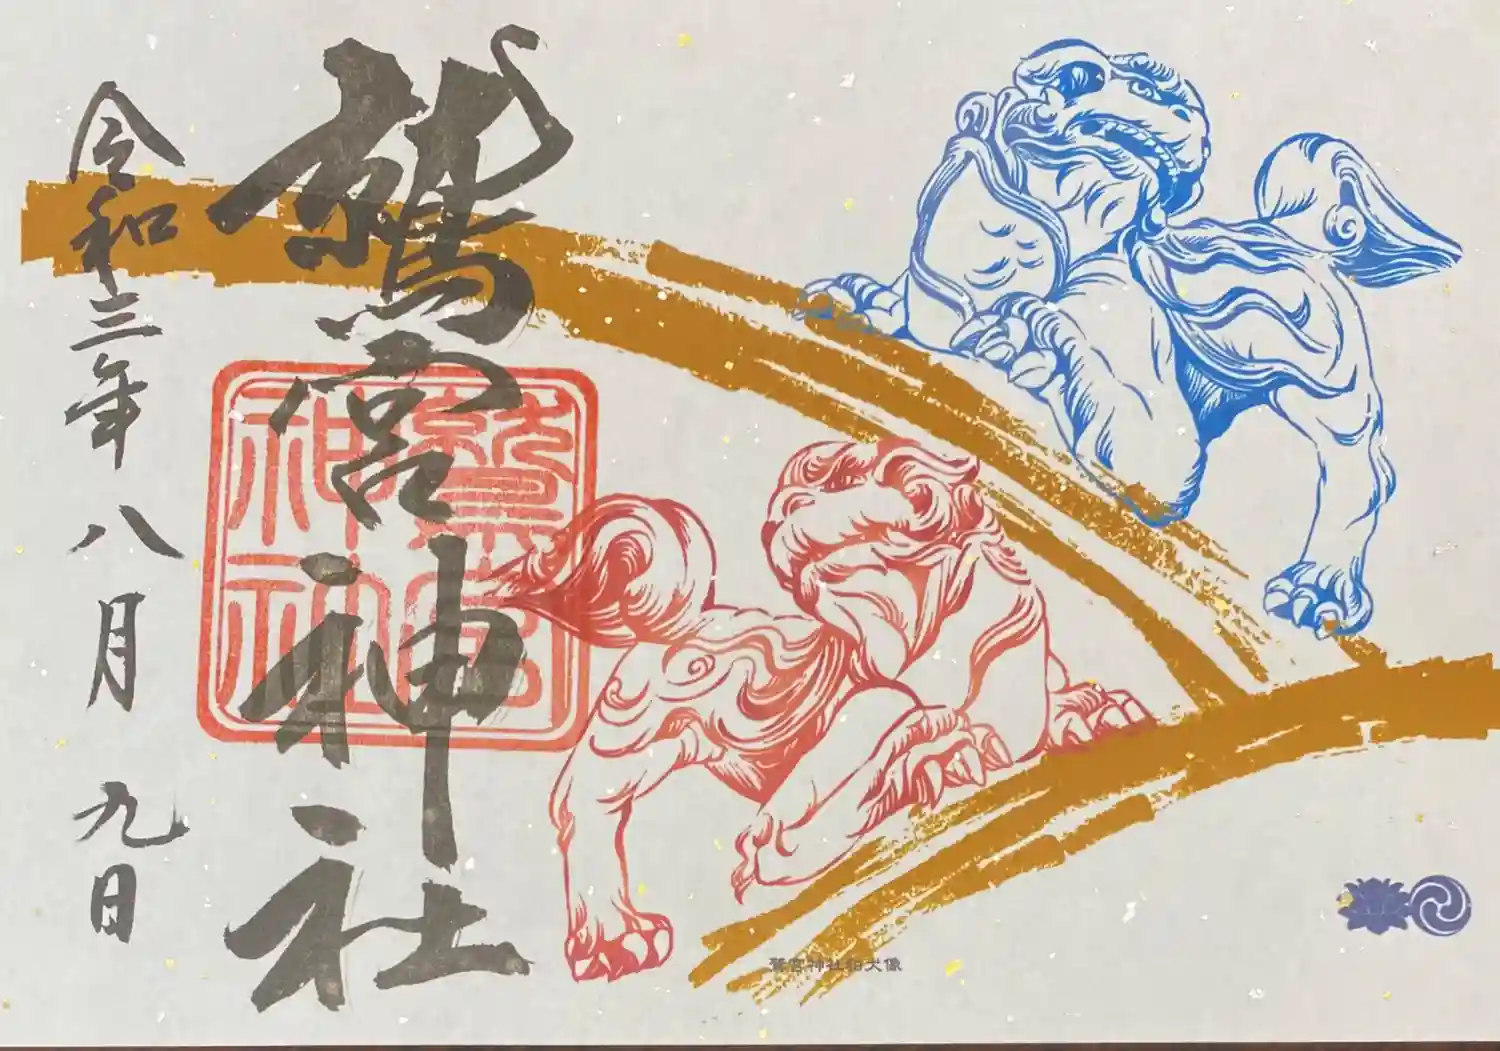 鷲宮神社
鷲宮
神社
令和三年八月九日
鷲宮神社狛犬像